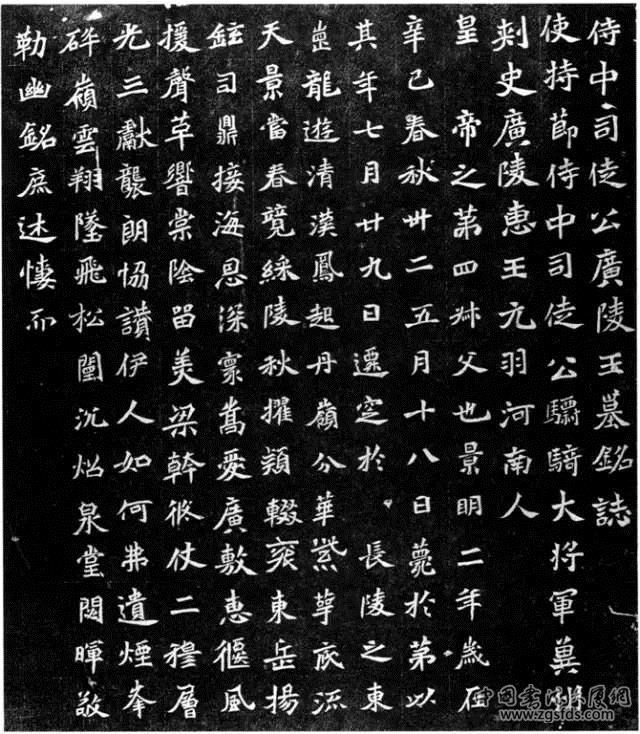 侍中司徒公廣陵王墓銘誌
使持節侍中司徒公驃騎大將軍冀州
刾史廣陵惠王元羽河南人
皇　帝之第四叔父也景明二年歲在
辛巳春秋卅二五月十八日薨於第以
其年七月廿九日遷窆於　長陵之東
崗龍遊清漢鳳起丹嶺分華紫萼底流
天景當春競綵陵秋擢穎輟袞東岳揚
鉉司鼎接海恩深寰嵩愛廣敷惠偃風
援聲草響棠陰留美梁幹攸仗二穆層
光三獻襲朗協讚伊人如何弗遺煙峯
碎嶺雲翔墜飛松闈沉炤泉堂閟暉敬
勒幽銘庶述悽而
www.zgsfds.com